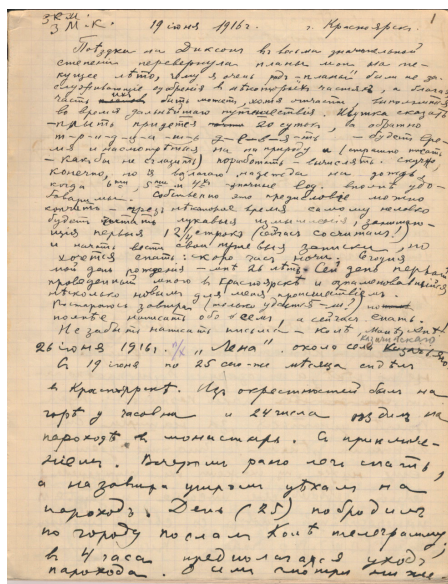 З К М.
З М. К. 19 іюня 1916 г. г. Красноярск. 1
Поѣздка на Диксон въ весьма значительной
степени перевернула планы мои на те-
кущее лѣто, чему я очень радъ - планы были не за-
служивающие одобрения в нѣкоторых частях, а благая
часть их быть может, хотя отчасти выполнится
во время дальнѣйшаго путешествия. Шутка сказать
-ѣхать придется 20 суток, а обратно
т-р-и-д-ц-а-т-ь д-е-в-я-т-ь - будет вре-
мя и насмотрѣться на природу и (страшно писать
- как бы не сглазить) поработать - вычислять. Скучно,
конечно, но я возлагаю надежды на дождь,
когда 6тью, 5тью и 4х - значные вполнѣ удо-
боваримы. Собственно это предисловие можно
через нѣкоторое время самому неловко
будет читать лукавыя измышления,
первыя 12 1/2 строк (сейчас сосчитал!)
и начать вести свои путевыя записки, но
хочется спать: скоро час ночи. Сегодня
мой день рождения - мнѣ 26 лѣтъ. Сей день первый
проведенный мною в Красноярскѣ и ознаменовавшийся
нѣсколько новым для меня происшествием.
Постараюсь завтра (только удастся-ли?) 
полнѣе написать обо всем, и сейчас спать.
Не забыть написать письма - Колѣ,
26 іюня 1916 г. п/х "Лена". около села Казачинскаго
С 19 іюня по 25 сего-же мѣсяца сидѣл
в Красноярскѣ. Из окрестностей был на
горѣ у часовни и 24 числа ѣздил на
пароходѣ в монастырь. С приключе-
ниями. Вечером рано легли спать,
а назавтра утром уѣхал на
пароход. День (25) побродил
по городу послал Колѣ телеграмму.
в 4 часа предполагался уход
парохода.